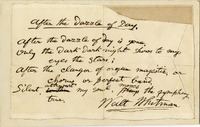 After the Dazzle of Day.
After the dazzle of day is gone,
Only the dark dark night shows to my
eyes the stars;
After the clangor of organ majestic, or
chorus, or perfect band,
Silent, athwart my soul, moves the symphony
true.
Walt Whitman